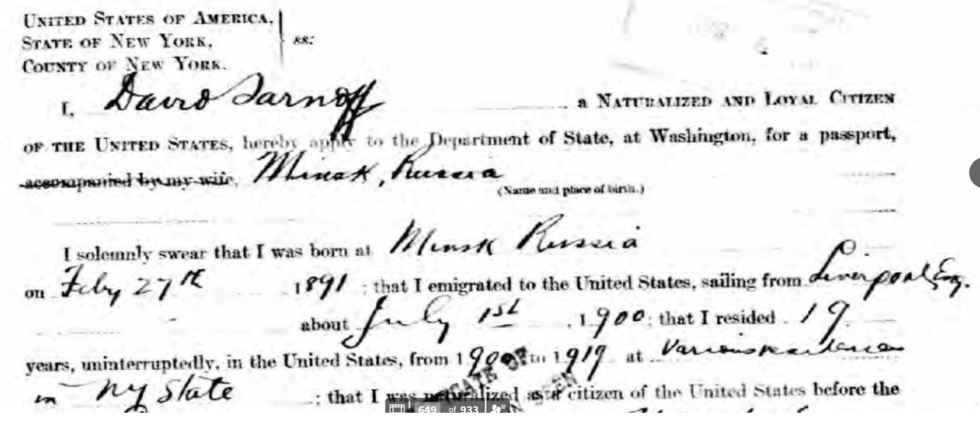 UNITED STATES OF AMERICA,
STATE OF NEW YORK, ss:
COUNTY OF NEW YORK.
I, David Sarnoff a NATURALIZED AND LOYAL CITIZEN
OF THE UNITED STATES, hereby apply to the Department of State, at Washington, for a passport,
accompanied by my wife, Minsk, Russia
(Name and place of birth.)
I solemnly swear that I was born at Minsk Russia
on Feby 27th 1891; that I emigrated to the United States, sailing from Liverpool Eng.
about July 1st, 1900; that I resided 19
years, uninterruptedly, in the United States, from 1900 to 1919 at Various
in NY State; that I was naturalized as a citizen of the United States before the
649 of 933